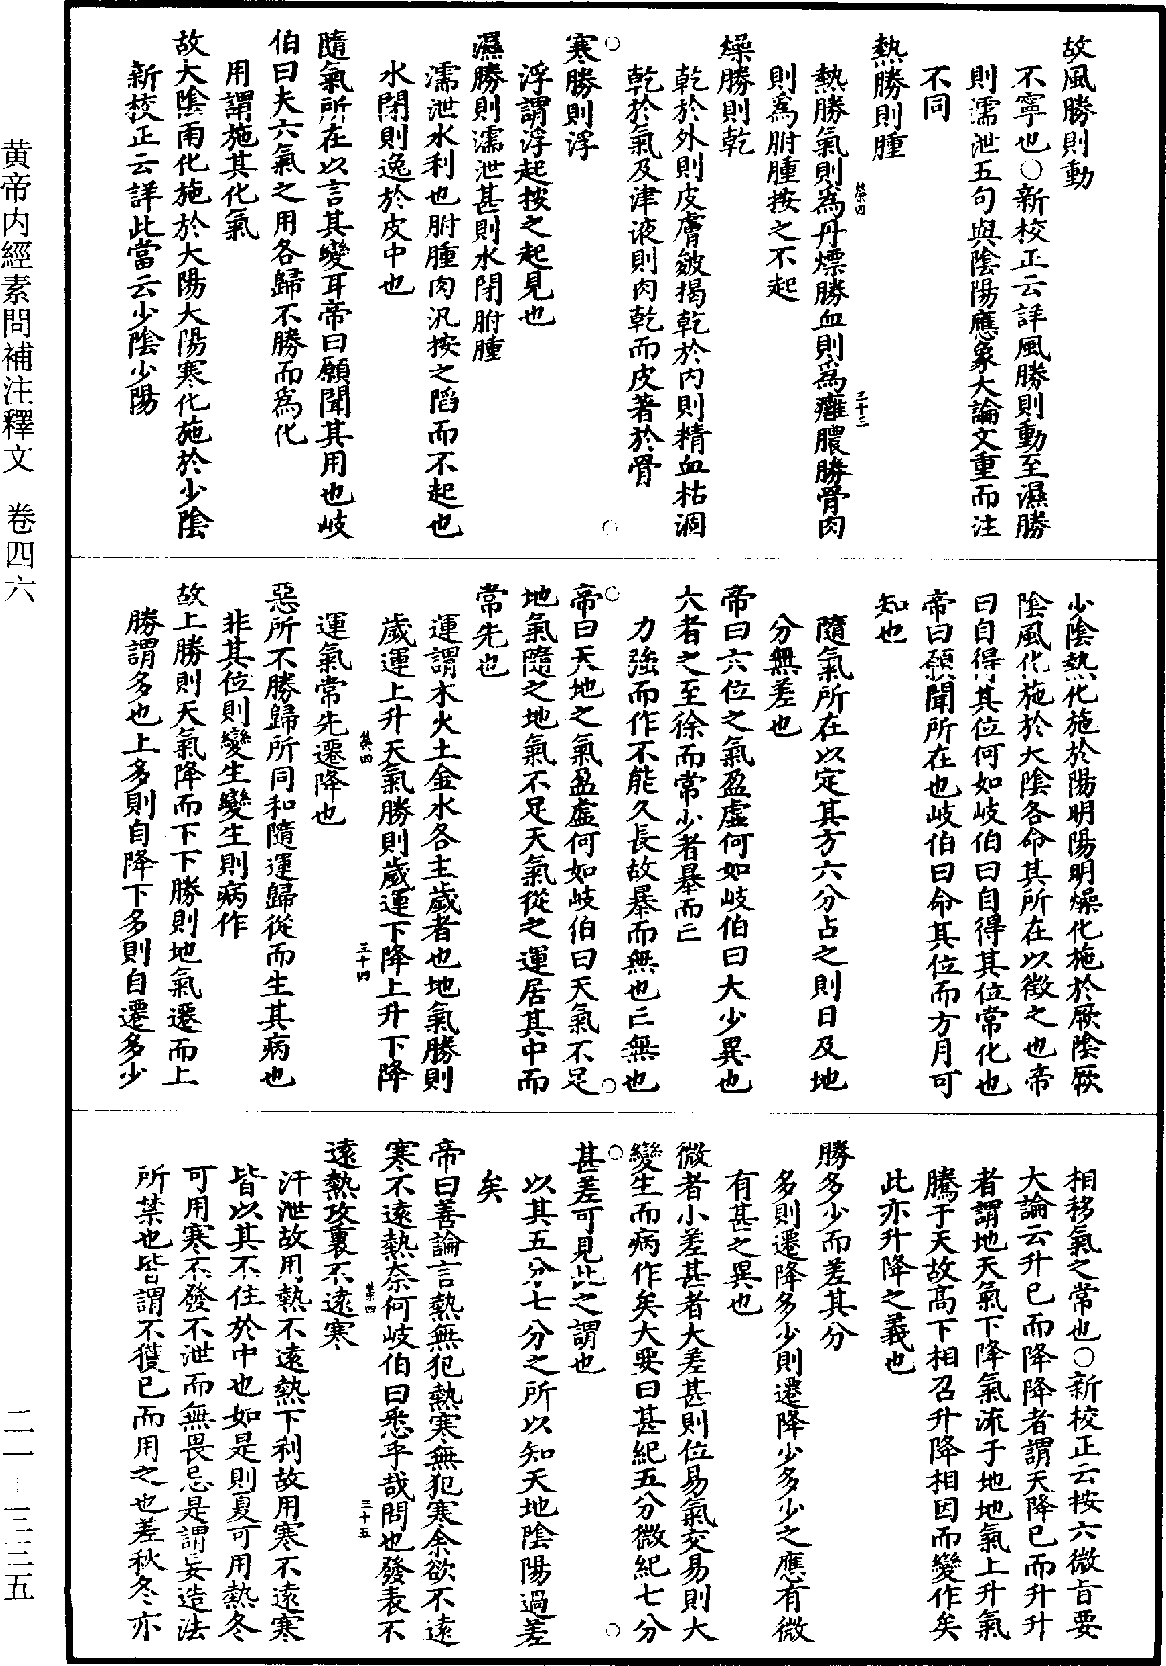 故風勝則動
不寧也○新校正云詳風勝則動至濕勝
則濡泄五句與陰陽應象大論文重而注
不同
熱勝則腫
熱勝氣則爲丹熛勝血則爲癰膿勝骨肉
則爲胕腫按之不起
燥勝則乾
乾於外則皮膚皴揭乾於内則精血枯涸
乾於氣及津液則肉乾而皮著於骨
寒勝則浮
浮謂浮起按之起見也
濕勝則濡泄甚則水閉胕腫
濡泄水利也胕腫肉汎按之陷而不起也
水閉則逸於皮中也
隨氣所在以言其變耳帝曰願聞其用也岐
伯曰夫六氣之用各歸不勝而爲化
用謂施其化氣
故大陰雨化施於大陽大陽寒化施於少陰
新校正云詳此當云少陰少陽
少陰熱化施於陽明陽明燥化施於厥陰厥
陰風化施於大陰各命其所在以徵之也帝
曰自得其位何如岐伯曰自得其位常化也
帝曰願聞所在也岐伯曰命其位而方月可
知也
隨氣所在以定其方六分占之則日及地
分無差也
帝曰六位之氣盈虛何如岐伯曰大少異也
大者之至徐而常少者暴而亡
力強而作不能久長故暴而無也亡無也
帝曰天地之氣盈虛何如岐伯曰天氣不足
地氣隨之地氣不足天氣從之運居其中而
常先也
運謂木火土金水各主歲者也地氣勝則
歲運上升天氣勝則歲運下降上升下降
運氣常先遷降也
惡所不勝歸所同和隨運歸從而生其病也
非其位則變生變生則病作
故上勝則天氣降而下下勝則地氣遷而上
勝謂多也上多則自降下多則自遷多少
相移氣之常也○新校正云按六微旨要
大論云升已而降降者謂天降已而升升
者謂地天氣下降氣流于地地氣上升氣
騰于天故高下相召升降相因而變作矣
此亦升降之義也
勝多少而差其分
多則遷降多少則遷降少多少之應有微
有甚之異也
微者小差甚者大差甚則位易氣交易則大
變生而病作矣大要曰甚紀五分微紀七分
甚差可見此之謂也
以其五分七分之所以知天地陰陽過差
矣
帝曰善論言熱無犯熱寒無犯寒余欲不遠
寒不遠熱奈何岐伯曰悉乎哉問也發表不
遠熱攻裏不遠寒
汗泄故用熱不遠熱下利故用寒不遠寒
皆以其不住於中也如是則夏可用熱冬
可用寒不發不泄而無畏忌是謂妄造法
所禁也皆謂不獲已而用之也差秋冬亦
黄帝内經素問補注釋文　卷四六
二一—三三五